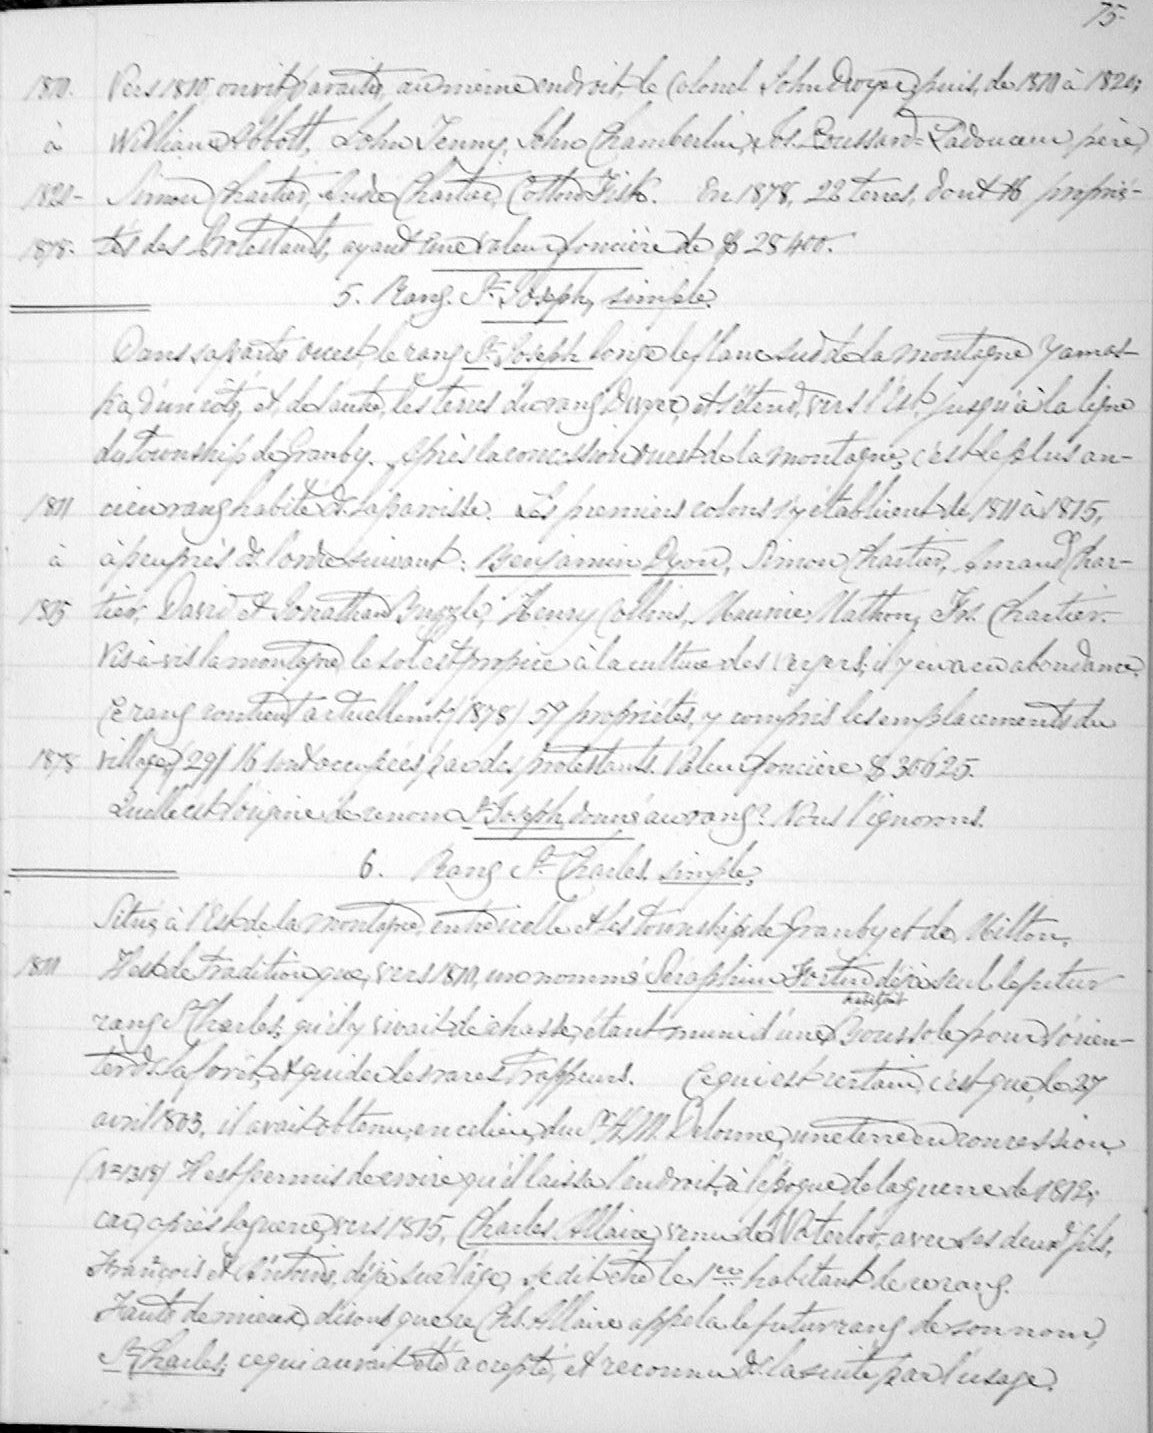 75
1810. Vers 1810, on vit paraître, au même endroit, le Colonel John Dwyer, puis, de 1810 à 1820,
à William Abbott, John Jenny, John Chamberlin, Jos. Poussard-Ladouceur père,
1820- Simon Chartier, Chartier, Cotton Fisk. En 1878, 22 terres, dont 16 proprié-
1878. tés des Protestants, ayant une valeur foncière de $ 28400.
5. Rang St Joseph, simple.
Dans sa partie ouest, le rang St Joseph longe le flanc sud de la montagne Yamas-
ka, d'un côté, et, de l'autre, les terres du rang Dwyer, et s'étend, vers l'Est, jusqu'à la ligne
du township de Granby. Après la concession ouest de la montagne, c'est le plus an-
1811 cien rang habité de la paroisse. Les premiers colons s'y établirent de 1811 à 1815,
à à peu près ds l'ordre suivant: Benjamin Dyon, Simon Chartier, Amand Char-
1815 tier, David et Jonathan Buzzle, Henry Collins, Maurice Mathon, Frs. Chartier.
Vis-à-vis la montagne, le sol est propice à la culture des vergers; il y en a en abondance.
Ce rang contient actuellement (1878) 59 propriétés, y compris les emplacements du
1878 village, (29) 16 sont occupées par des protestants. Valeur foncière $ 30625.
Quelle est l'origine de ce nom St Joseph, donné au rang? Nous l'ignorons.
6. Rang St Charles, simple.
Situé à l'Est de la montagne, entre icelle et les townships de Granby et de Milton.
1810 Il est de tradition que, vers 1810, un nommé Séraphin Fortin déjà seul le futur
habitait
rang St Charles, qu'il y vivait de chasse, étant muni d'une Boussole pour s'orien-
ter ds la forêt, et guider les rares trappeurs. Ce qui est certain, c'est que, le 27
avril 1803, il avait obtenu, en ce lieu, du Sr H. M. Delorme, une terre en concession,
(No 1318) Il est permis de croire qu'il laissa l'endroit, à l'époque de la guerre de 1812;
car, après la guerre, vers 1815, Charles Allaire, venu de Waterloo, avec ses deux fils,
François et Antoine, déjà sur l'âge, se dit être le 1er habitant de ce rang.
Faute de mieux, disons que ce Chs. Allaire appela le futur rang de son nom,
St Charles, ce qui aurait été accepté, et reconnu ds la suite par l'usage.